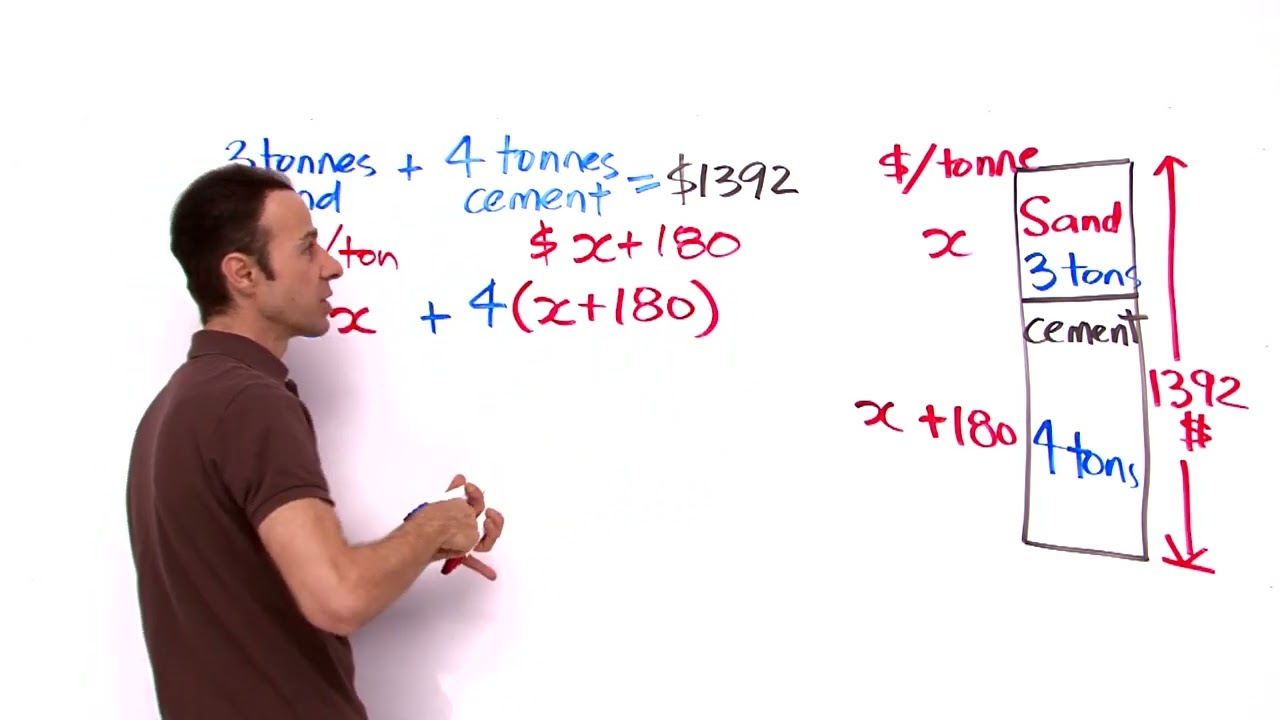 3 tonnes + 4 tonnes
cement = $1392
/ton $ x+180
x + 4(x+180)
$/tonne
x
Sand
3 tons
cement
x+180
4 tons
1392
$